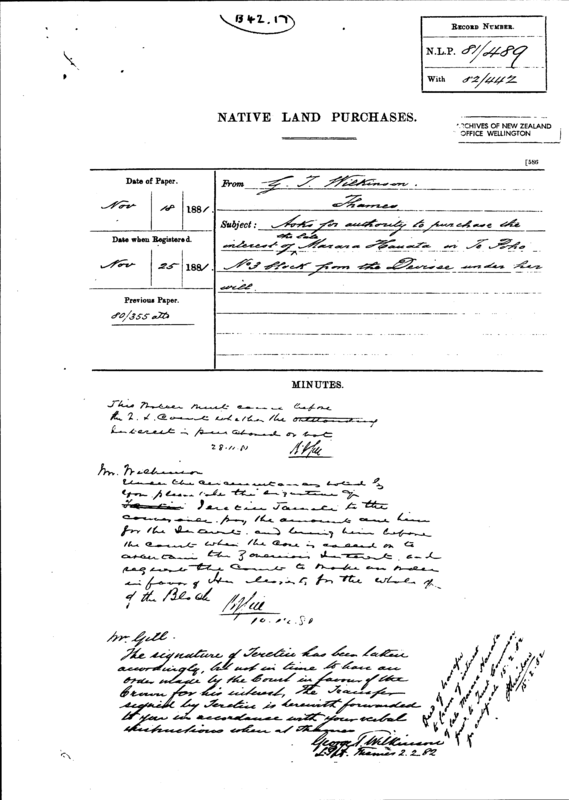 B42.17
RECORD NUMBER.
N.L.P. 81/489
With 82/442
NATIVE LAND PURCHASES.
ARCHIVES OF NEW ZEALAND
OFFICE WELLINGTON
[586
Date of Paper.
Nov 18 1881.
Date when Registered.
Nov 25 1881.
Previous Paper.
80/355 atts
From G. T. Wilkinson.
Thames
Subject: Asks for authority to purchase the
the late
interest of Marara Hauata in Te
No 3 block from the Devisee under her
will.
MINUTES.
This matter must come before
the Court whether the outstanding
Interest is purchased or not
28.11.81
R Gill
Mr. Wilkinson
Under the circumstances by
you please take the signature of
to the
conveyance, pay the amount
for the Interest and bring him before
the Court when the case is called on to
ascertain the Interest, and
request the Court to make an order
in favor of Her for the whole of
of the Block
R Gill
Mr Gill.
The signature of Teretiu has been taken
accordingly, but not in time to have an
order made by the Court in favour of the
Crown for his interest. The Transfer
signed by Teretiu is herewith forwarded
to you in accordance with your verbal
instructions when at Thames
George T Wilkinson
Thames 2.2.82
Deed of transfer
to Crown of interest
of late Marara Hauata
15.2.82
15.2.82